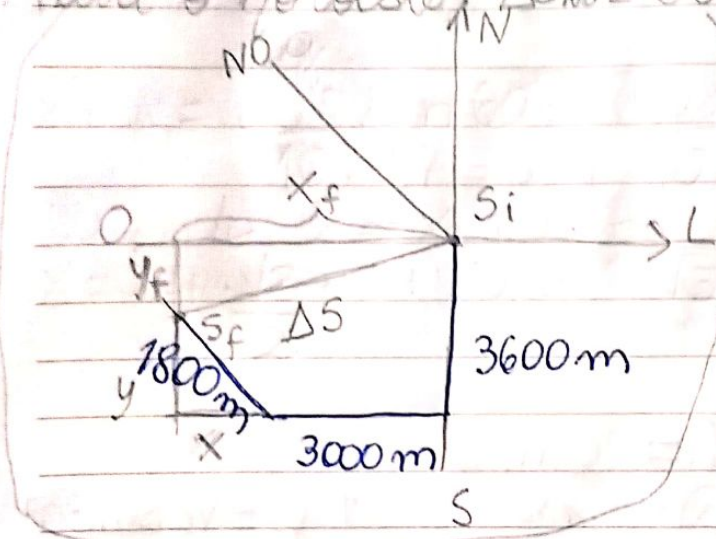 N
NO
Xf
Si
O
L
yf
Sf
ΔS
1800m
3600m
y
x
3000m
S